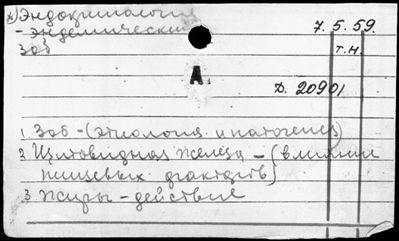 Эндокринология
- эндемический
зоб
7. 5. 59.
т.н.
А.
D. 20901
1. Зоб - (этиология и патогенез)
2. Щитовидная железа - (влияние
пищевых факторов)
3. Жиры - действие